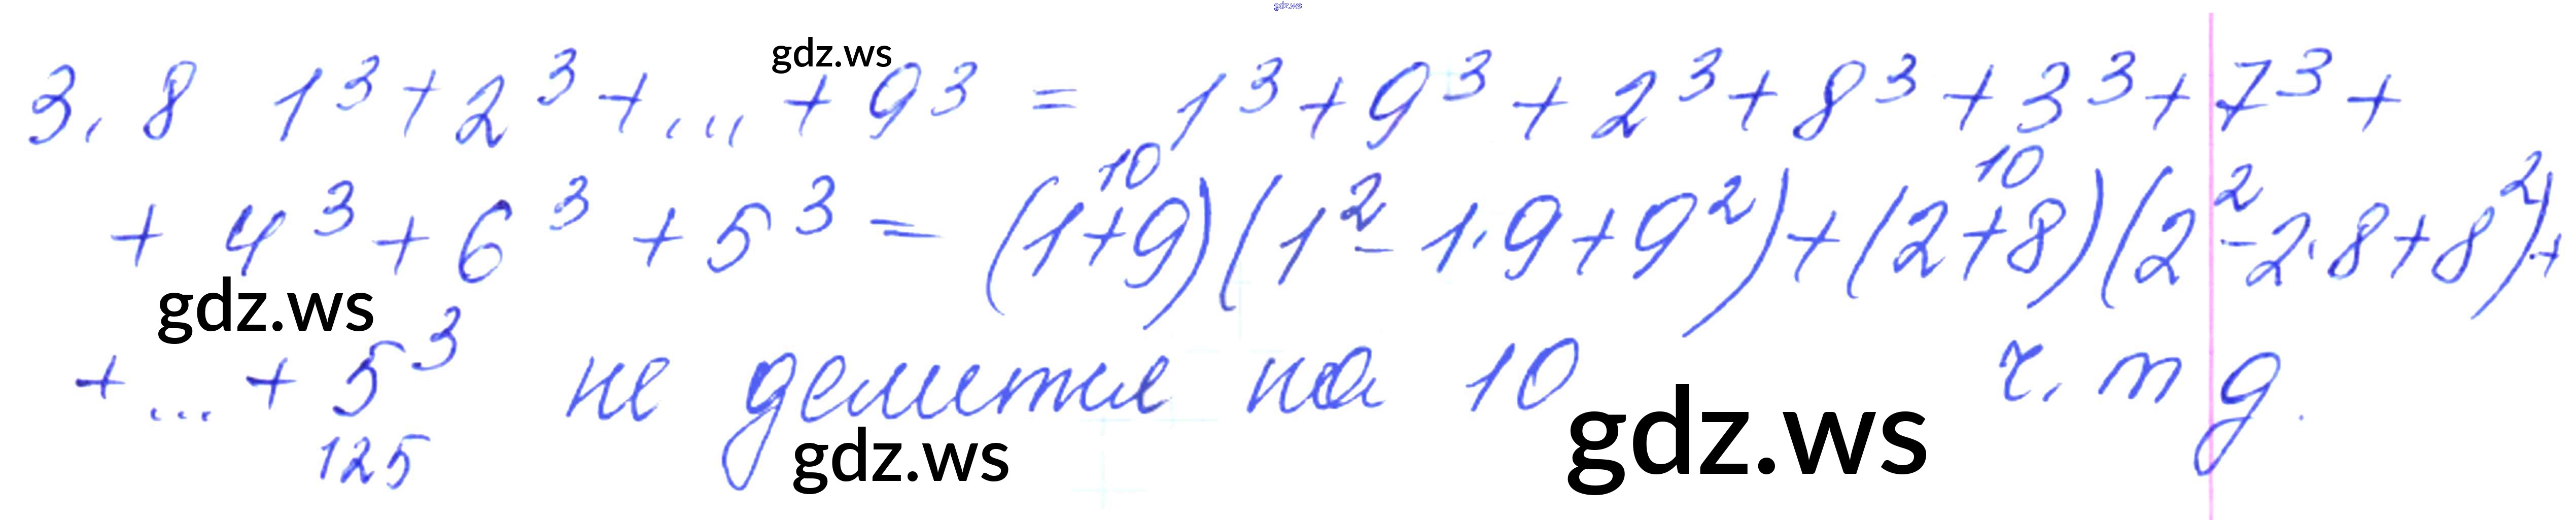 gdz.ws
3. 8 1³ + 2³ + ... + 9³ = 1³ + 9³ + 2³ + 8³ + 3³ + 7³ +
gdz.ws
10 10
+ 4³ + 6³ + 5³ = (1+9)(1² - 1·9 + 9²) + (2+8)(2² - 2·8 + 8²) +
gdz.ws
+ ... + 5³ не делится на 10 ч. т д.
125
gdz.ws
gdz.ws